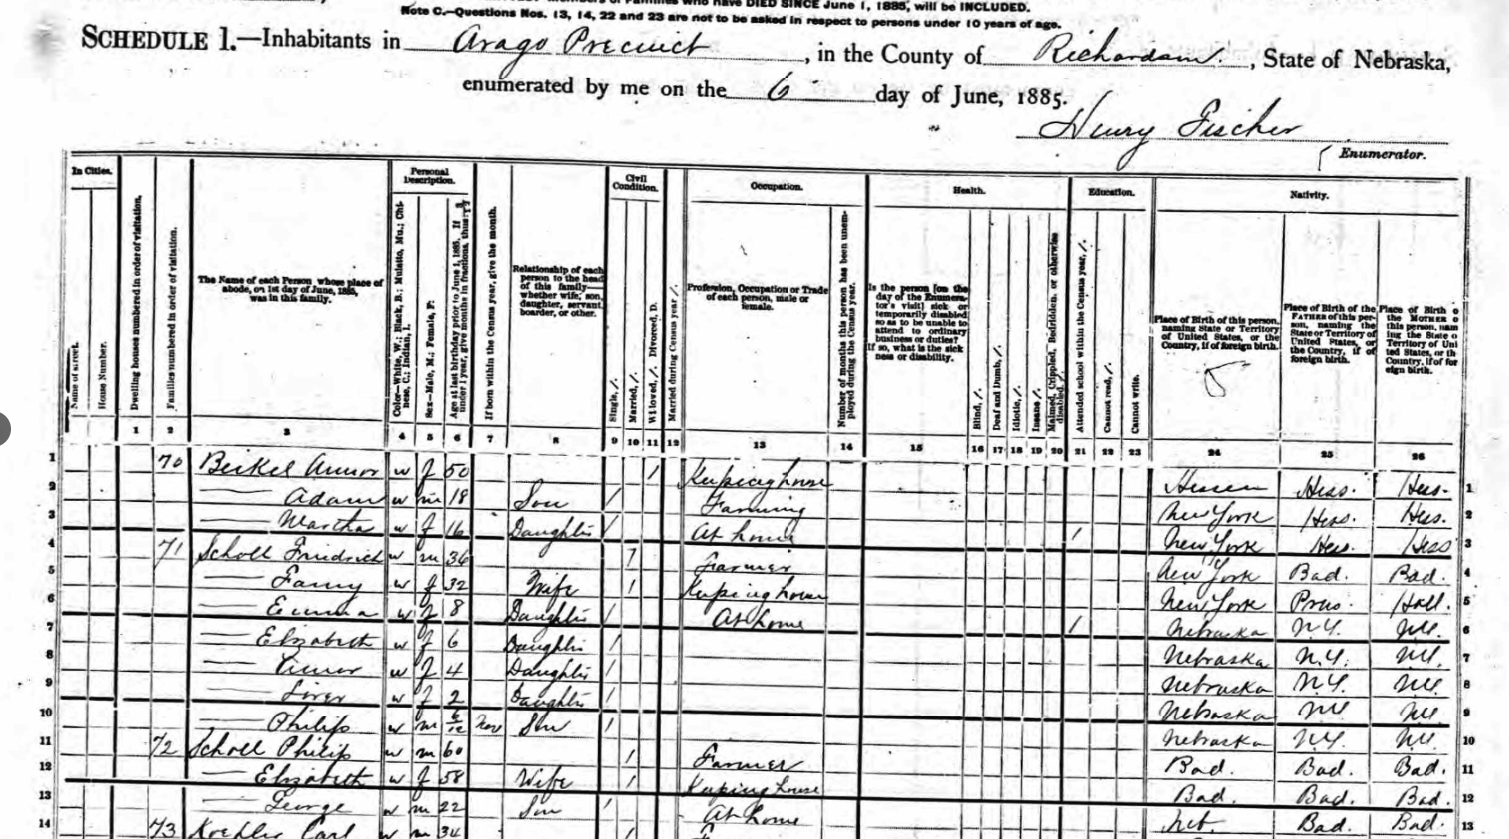 who have DIED SINCE June 1, 1885, will be INCLUDED.
Note C.—Questions Nos. 13, 14, 22 and 23 are not to be asked in respect to persons under 10 years of age.
SCHEDULE 1.—Inhabitants in Arago Precinct, in the County of Richardson, State of Nebraska,
enumerated by me on the 6 day of June, 1885.
Henry Fischer
Enumerator.
In Cities.
Name of street.
House Number.
Dwelling houses numbered in order of visitation.
Families numbered in order of visitation.
The Name of each Person whose place of abode, on 1st day of June, 1885, was in this family.
Personal Description.
Color—White, W.; Black, B.; Mulatto, Mu.; Chinese, C.; Indian, I.
Sex—Male, M.; Female, F.
Age at last birthday prior to June 1, 1885. If under 1 year, give months in fractions, thus
If born within the Census year, give the month.
Relationship of each person to the head of this family—whether wife, son, daughter, servant, boarder, or other.
Civil Condition.
Single, /.
Married, /.
Widowed, /. Divorced, D.
Married during Census year /.
Occupation.
Profession, Occupation or Trade of each person, male or female.
Number of months this person has been unemployed during the Census year.
Health.
Is the person [on the day of the Enumerator's visit] sick or temporarily disabled so as to be unable to attend to ordinary business or duties? If so, what is the sickness or disability.
Blind, /.
Deaf and Dumb, /.
Idiotic, /.
Insane, /.
Maimed, Crippled, Bedridden, or otherwise disabled, /.
Education.
Attended school within the Census year, /.
Cannot read, /.
Cannot write.
Nativity.
Place of Birth of this person, naming State or Territory of United States, or the Country, if of foreign birth.
Place of Birth of the FATHER of this person, naming the State or Territory of United States, or the Country, if of foreign birth.
Place of Birth o the MOTHER o this person, nam ing the State o Territory of Uni ted States, or th Country, if of for eign birth.
1 2 3 4 5 6 7 8 9 10 11 12 13 14 15 16 17 18 19 20 21 22 23 24 25 26
1 70 Beikel w f 50 / Keeping house Hessen Hess. Hess. 1
2 — Adam w m 18 Son / Farming New York Hess. Hess. 2
3 — Martha w f 16 Daughter / At home / New York Hess. Hess 3
4 71 Scholl Friedrich w m 36 1 Farmer New York Bad. Bad. 4
5 — Fanny w f 32 Wife 1 Keeping house New York Prus. Holl. 5
6 — Emma w f 8 Daughter / At home / Nebraska N.Y. N.Y. 6
7 — Elizabeth w f 6 Daughter / Nebraska N.Y. N.Y. 7
8 — w f 4 Daughter / Nebraska N.Y. N.Y. 8
9 — w f 2 Daughter / Nebraska N.Y. N.Y. 9
10 — Philip w m 6/12 Nov Son / Nebraska N.Y. N.Y. 10
11 72 Scholl Philip w m 60 / Farmer Bad. Bad. Bad. 11
12 — Elizabeth w f 58 Wife / Keeping house Bad. Bad. Bad. 12
13 — George w m 22 Son / At home Bad. Bad. 13
14 73 Koehler Carl w m 34